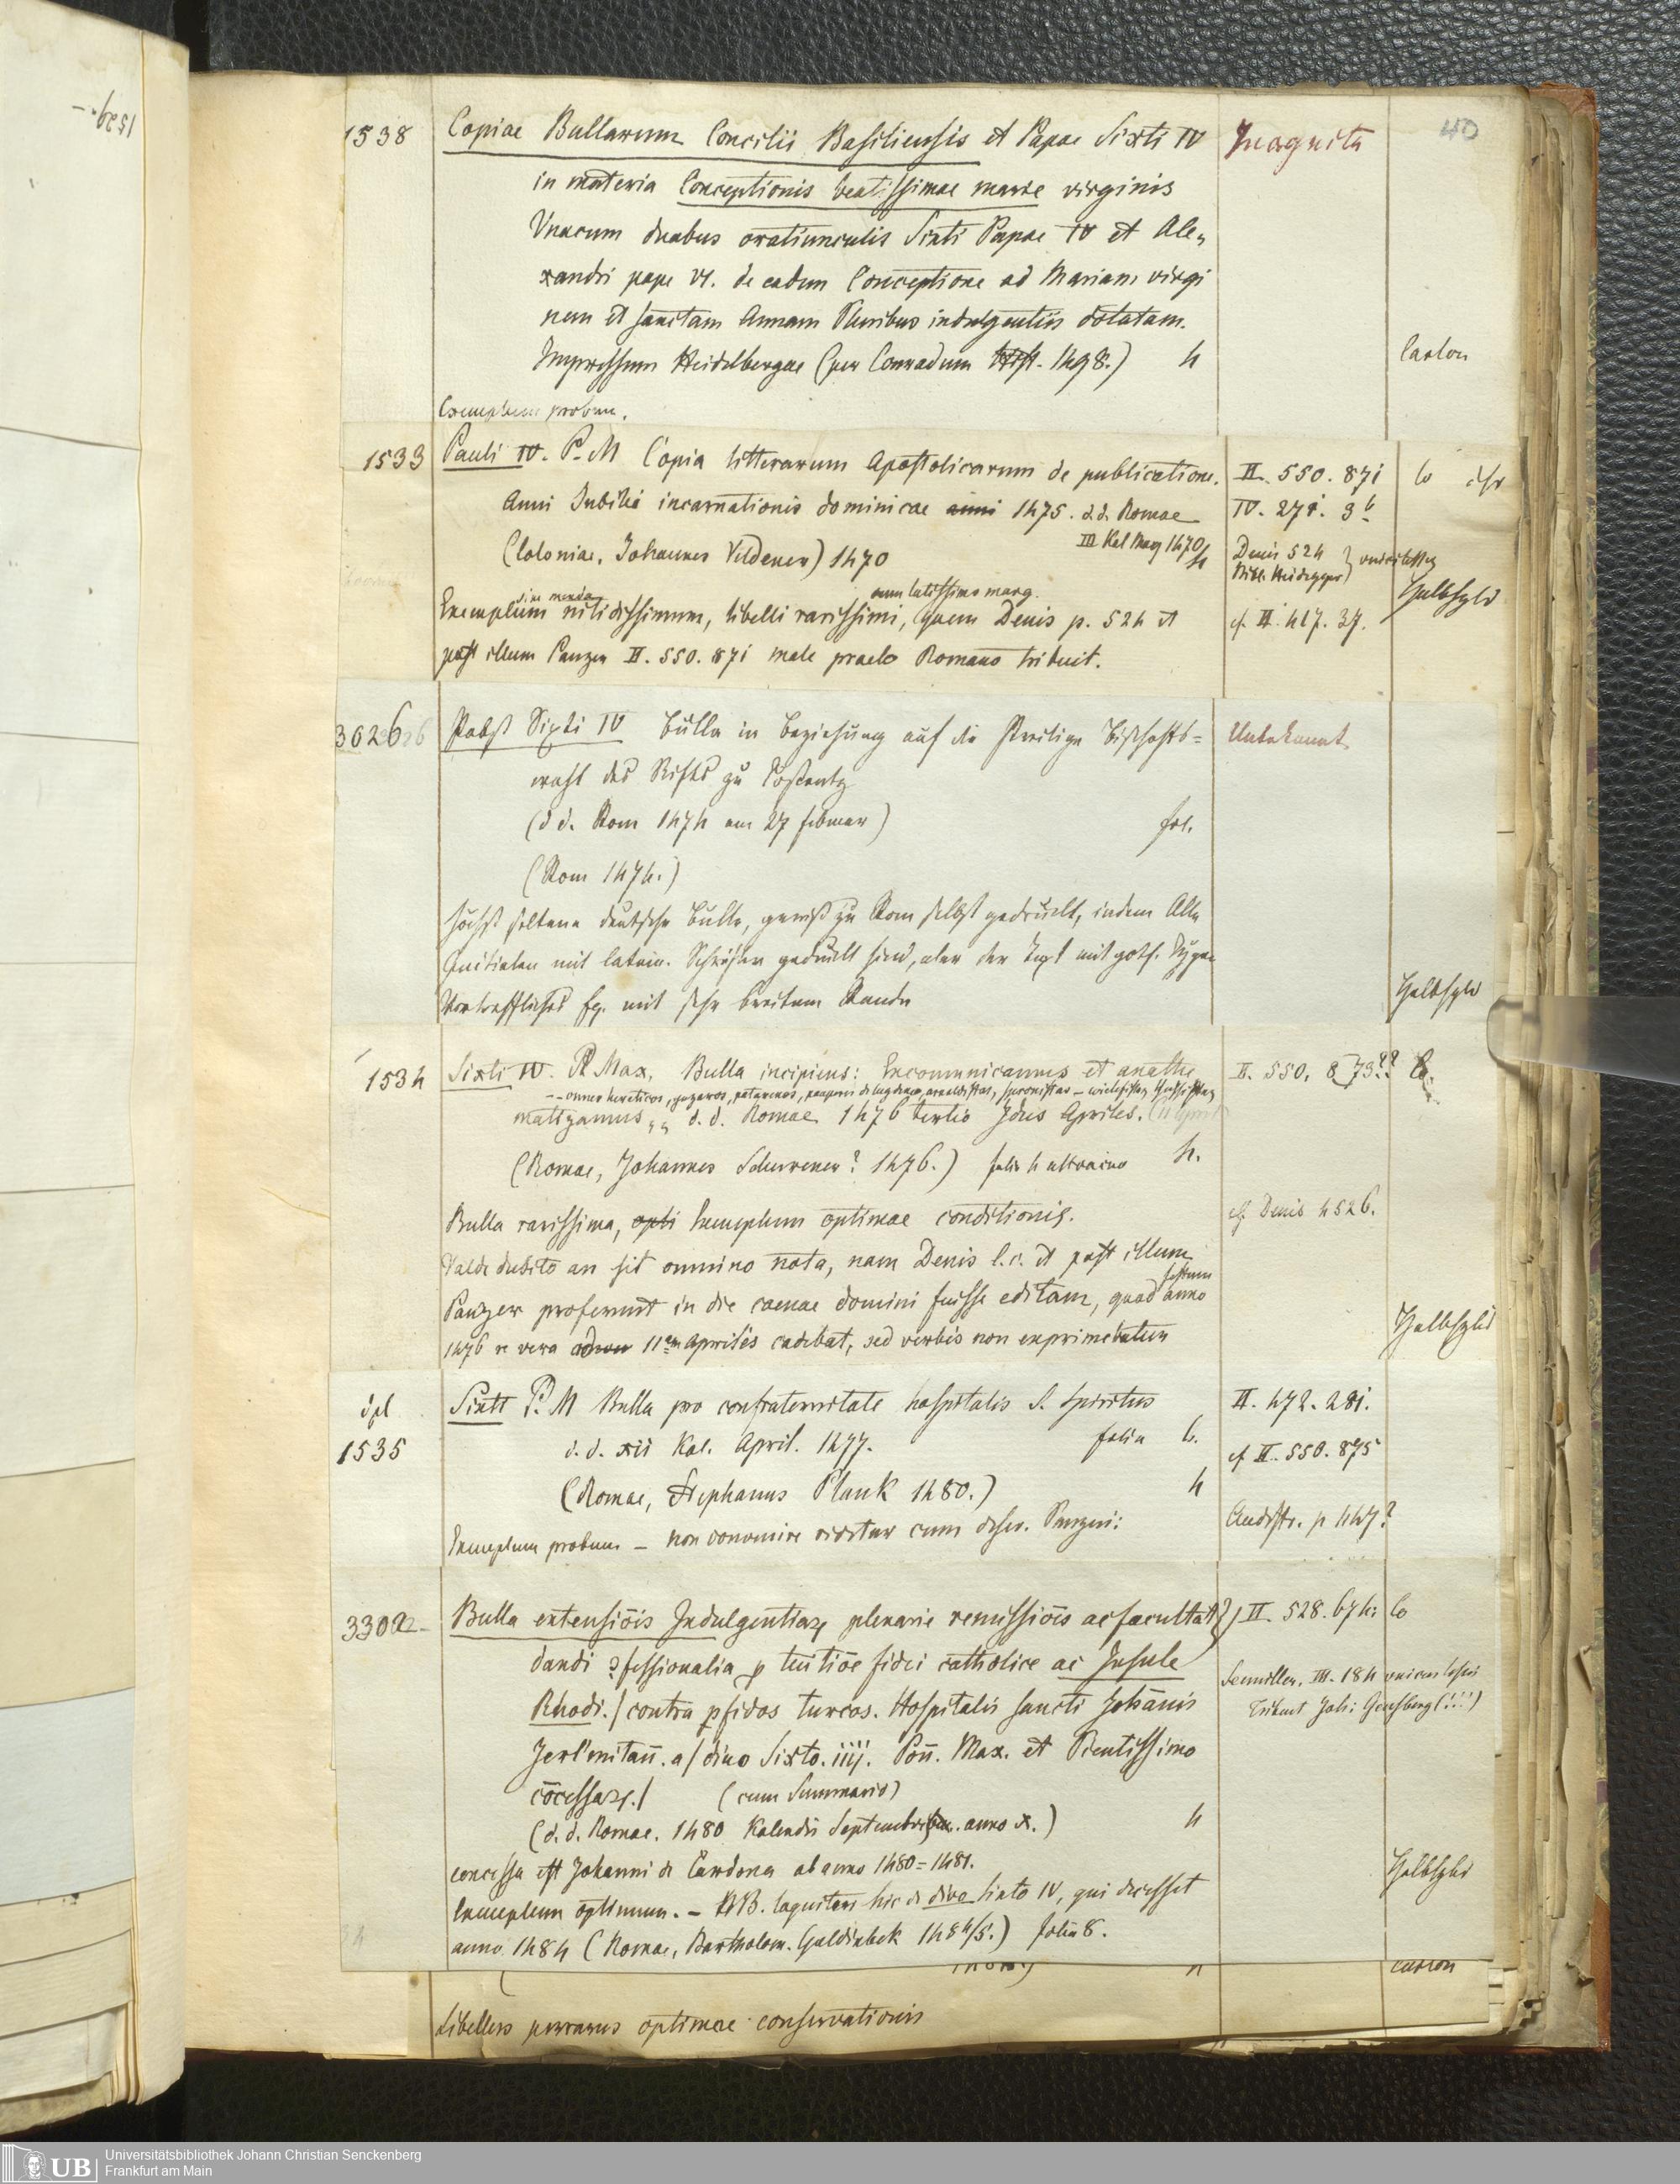 1529.-
40
1538 Copiae Bullarum Concilii Basiliensis et Papae Sixti IV Incognita
in materia Conceptionis beatissimae marie virginis
Vnacum duabus oratiunculis Sixti Papae IV et Ale„
xandri pape VI. de eadem Conceptione ad Mariam virgi
nem et sanctam Annam Pluribus indulgentiis dotatam.
Impressum Heidelbergae (per Conradum Hist. 1498.) 4 Carton
Exemplum probum.
1533 Pauli IV. P. M Copia litterarum Apostolicarum de publicatione. II. 550. 871 Co
Anni Jubilei incarnationis dominicae anni 1475. d.d. Romae IV. 271. 36
III Kal May 1470
(Coloniae, Johannes Veldener) 1470 4 Denis 524
Bibl. Heidegger
sine menda cum latissimo marg.
Exemplum nitidissimum, libelli rarissimi, quem Denis p. 524 et cf. II. 417. 37. Halbfzbd
post illum Panzer II. 550. 871 male praelo Romano tribuit.
30266 Pabst Sixti IV Bulla in Beziehung auf die streitige Bischofs= Unbekannt
wahl des Stifts zu Costentz
(d d. Rom 1474 am 27 februar) fol.
(Rom 1474.)
höchst seltene deutsche Bulle, gewiß zu Rom selbst gedruckt, indem Alle
Initialen mit latein. Schriften gedruckt sind, aber der Text mit goth. Typen
Vortreffliches Ex. mit sehr breitem Rande Halbfzbd
1534 Sixti IV. P. Max. Bulla incipiens: Excommunicamus et anathe II. 550. 873??
-- omnes hereticos, gazaros, patarenos, pauperes de lugduno, arnaldistas, speronistas - wiclefistas, Hussistas
matizamus „„ d. d. Romae 1476 tertio Idus Apriles.
(Romae, Johannes Schurener? 1476.) folia 4 4.
Bulla rarissima, opti Exemplum optimae conditionis. cf. Denis 4526.
Valde dubito an sit omnino nota, nam Denis l. c. et post illum
Panzer proferunt in die caenae domini fuisse editam, quod festum anno
1476 re vera 11am Aprilis cadebat, sed verbis non exprimebatur Halbfzbd
1535 Sixti P. M Bulla pro confraternitate hospitalis S. Spiritus II. 472. 281.
d. d. xii Kal. April. 1477. folia 6. cf II. 550. 875
(Romae, Stephanus Plank 1480.) 4
Exemplum probum - non convenire videtur cum descr. Panzeri: Audiffr. p 447?
3302 Bulla extensiōis Indulgentiaꝝ plenarie remissiōis ac facultat II. 528. 674: Co
dandi ꝯfessionalia ꝓ tuitiōe fidei catholice ac Insule
Seemiller. III. 184
Rhodi./ contra ꝑfidos turcos. Hospitalis sancti Johānis
Tribuit Joh: Gensberg (!!!)
Jerl'mitan̄. a/ diuo Sixto. iiij. Pon̄. Max. et Clementissimo
cōcessaꝝ./ (cum Summario)
(d. d. Romae. 1480 Kalendis Septembribus. anno X.) 4
concessa est Johanni de Cardona ab anno 1480=1481. Halbfzbd
Exemplum optimum. - NB. loquitur hic de divo Sixto IV, qui decessit
anno 1484 (Romae, Bartholom. Guldinbek 1484/5.) folia 8.
carton
Libellus perrarus optimae conservationis
UB Universitätsbibliothek Johann Christian Senckenberg
Frankfurt am Main